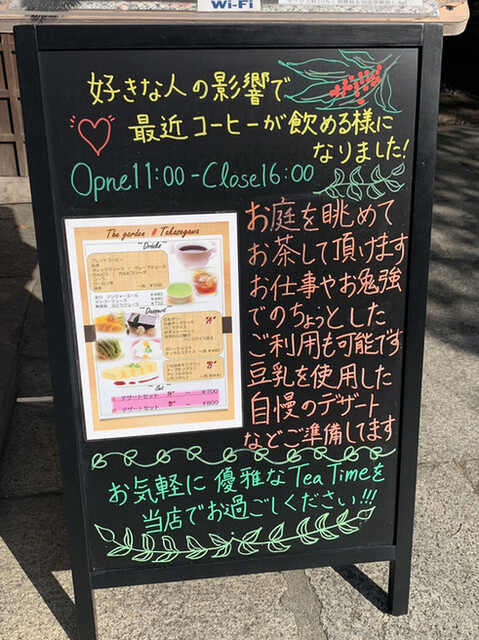 Wi-Fi
好きな人の影響で
最近コーヒーが飲める様に
なりました!
Opne11:00-Close16:00
お庭を眺めて
お茶して頂けます
お仕事やお勉強
でのちょっとした
ご利用も可能です
豆乳を使用した
自慢のデザート
などご準備してます
The garden # Takasegawa
Drinks
ブレンドコーヒー
Dessert
"A"
"B"
Set
デザートセット "A" ー ¥700
デザートセット "B" ー ¥800
お気軽に 優雅な Tea Timeを
当店でお過ごしください!!!